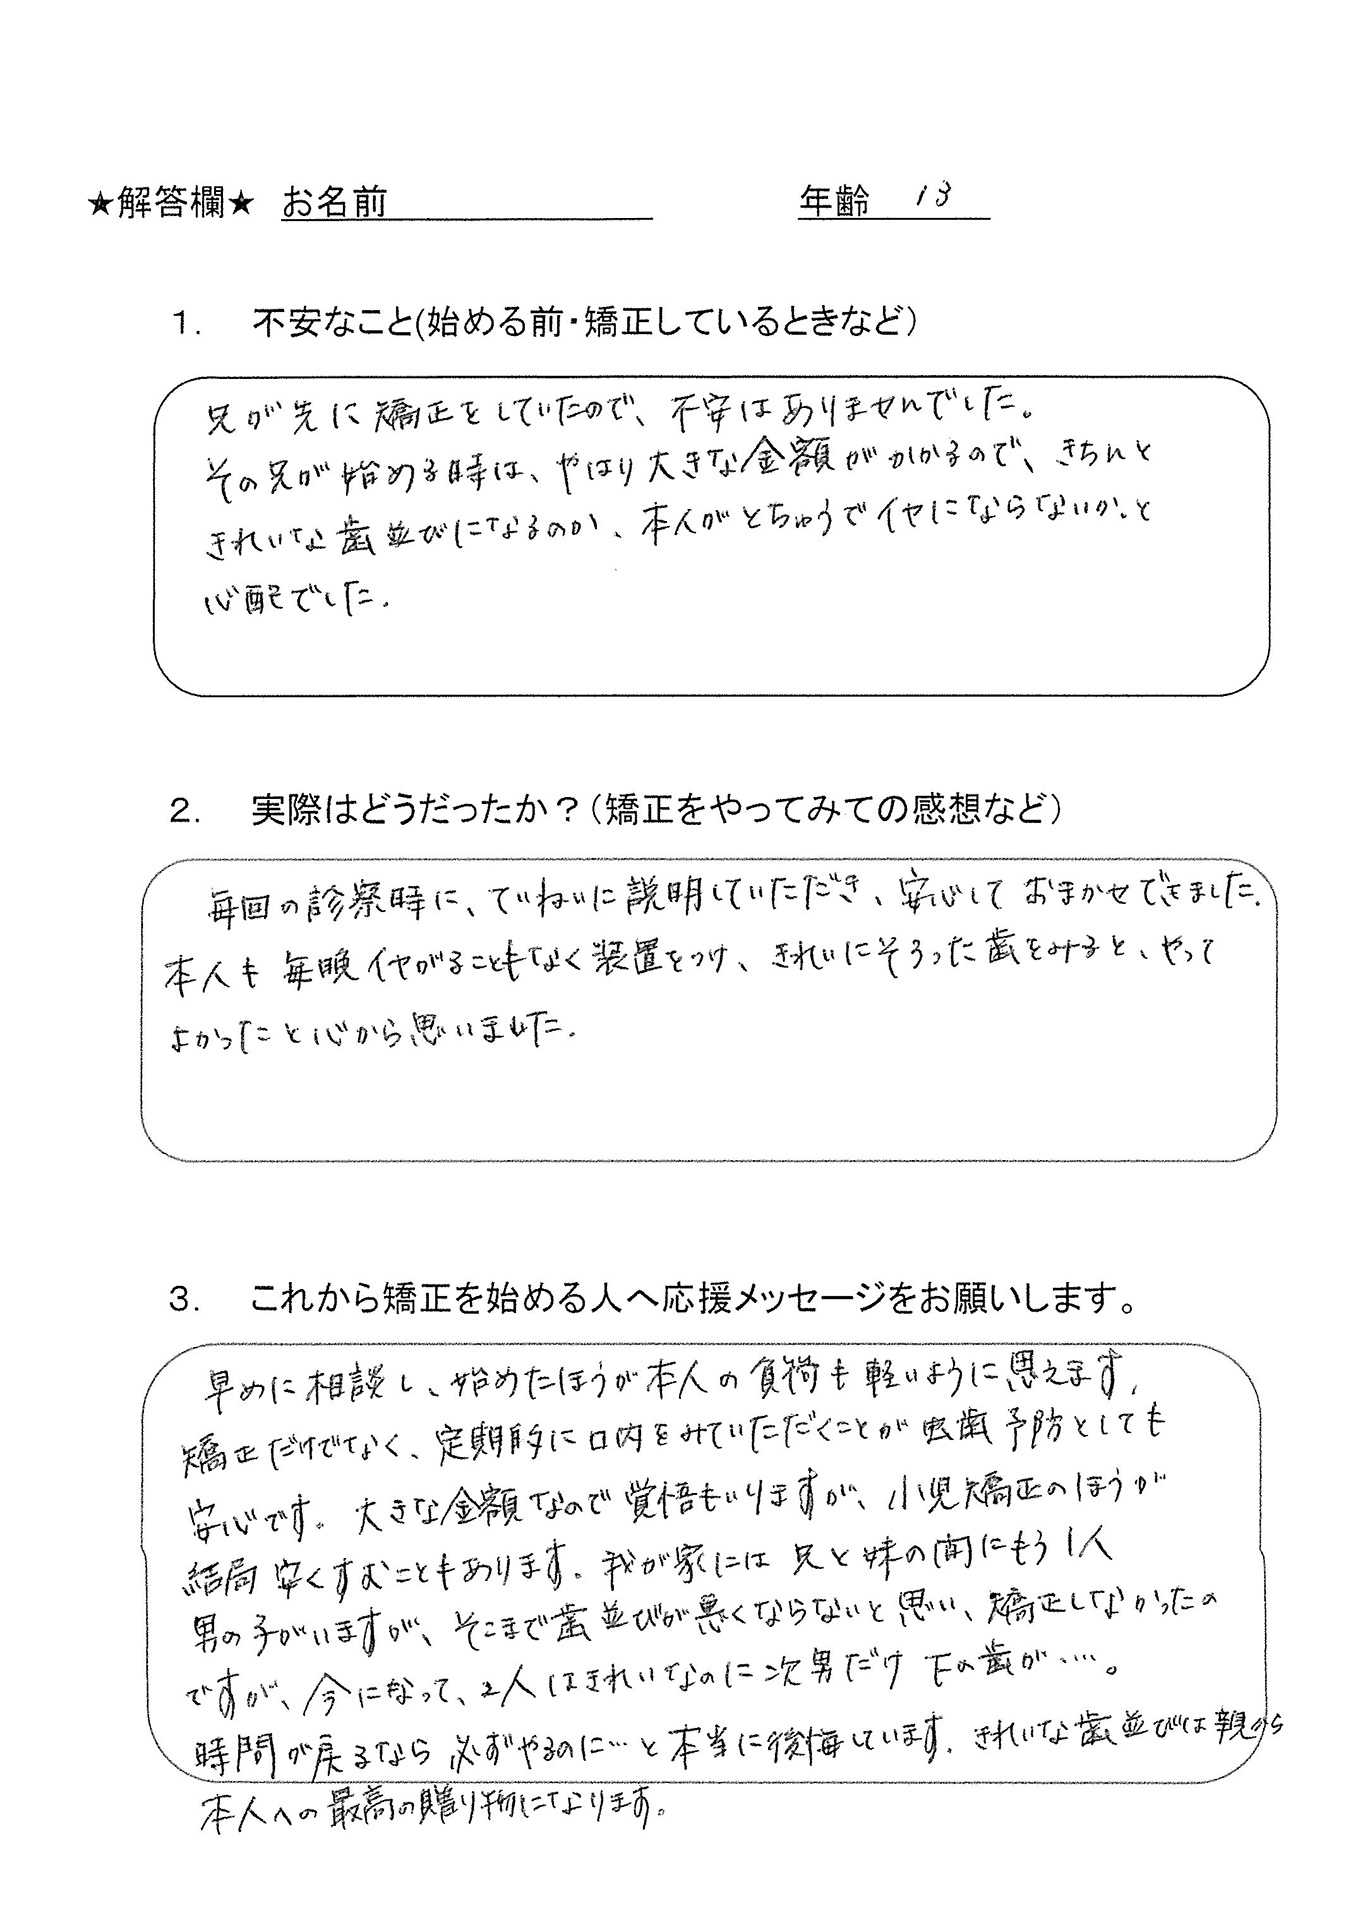 ★解答欄★ お名前 年齢 13
1. 不安なこと(始める前・矯正しているときなど)
兄が先に矯正をしていたので、不安はありませんでした。
その兄が始める時は、やはり大きな金額がかかるので、きちんと
きれいな歯並びになるのか、本人がとちゅうでイヤにならないか、と
心配でした。
2. 実際はどうだったか?(矯正をやってみての感想など)
毎回の診察時に、ていねいに説明していただき、安心しておまかせできました。
本人も毎晩イヤがることもなく装置をつけ、きれいにそろった歯をみると、やって
よかったと心から思いました。
3. これから矯正を始める人へ応援メッセージをお願いします。
早めに相談し、始めたほうが本人の負荷も軽いように思えます。
矯正だけでなく、定期的に口内をみていただくことが虫歯予防としても
安心です。大きな金額なので覚悟もいりますが、小児矯正のほうが
結局安くすむこともあります。我が家には兄と妹の間にもう1人
男の子がいますが、そこまで歯並びが悪くならないと思い、矯正しなかったの
ですが、今になって、2人はきれいなのに次男だけ下の歯が….。
時間が戻るなら必ずやるのに…と本当に後悔しています。きれいな歯並びは親から
本人への最高の贈り物になります。